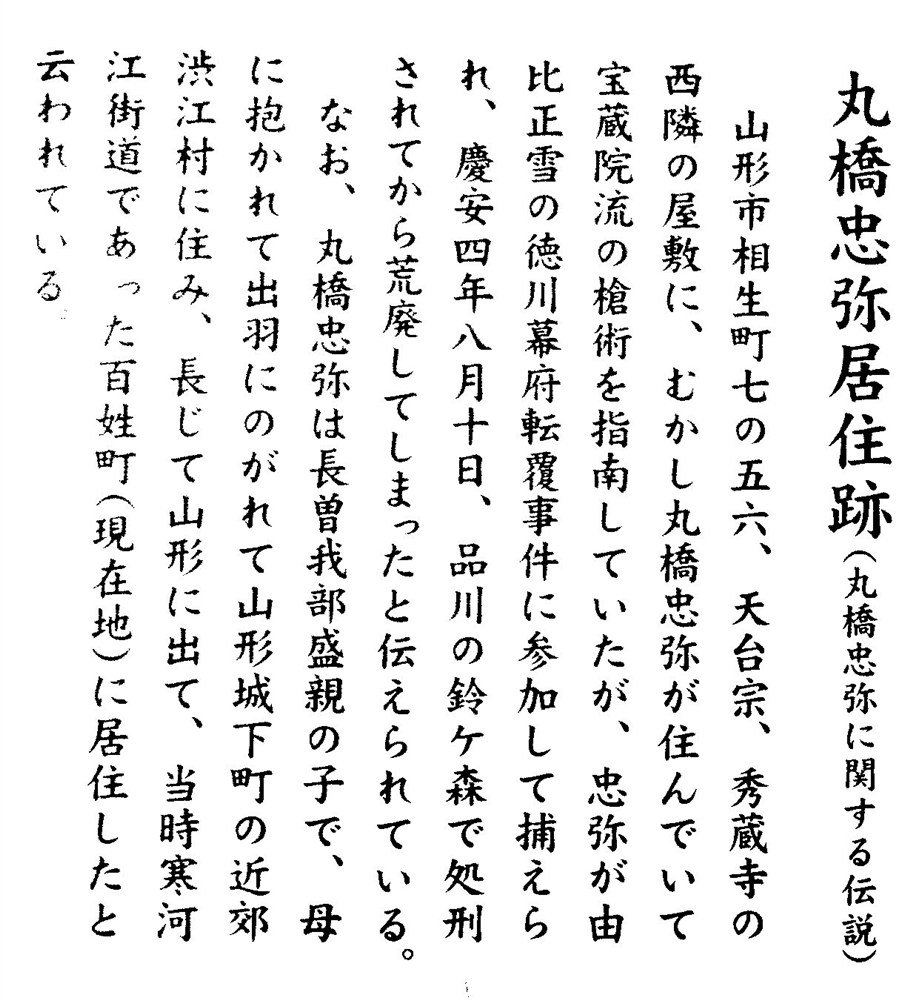 丸橋忠弥居住跡(丸橋忠弥に関する伝説)
山形市相生町七の五六、天台宗、秀蔵寺の
西隣の屋敷に、むかし丸橋忠弥が住んでいて
宝蔵院流の槍術を指南していたが、忠弥が由
比正雪の徳川幕府転覆事件に参加して捕えら
れ、慶安四年八月十日、品川の鈴ケ森で処刑
されてから荒廃してしまったと伝えられている。
なお、丸橋忠弥は長曽我部盛親の子で、母
に抱かれて出羽にのがれて山形城下町の近郊
渋江村に住み、長じて山形に出て、当時寒河
江街道であった百姓町(現在地)に居住したと
云われている。